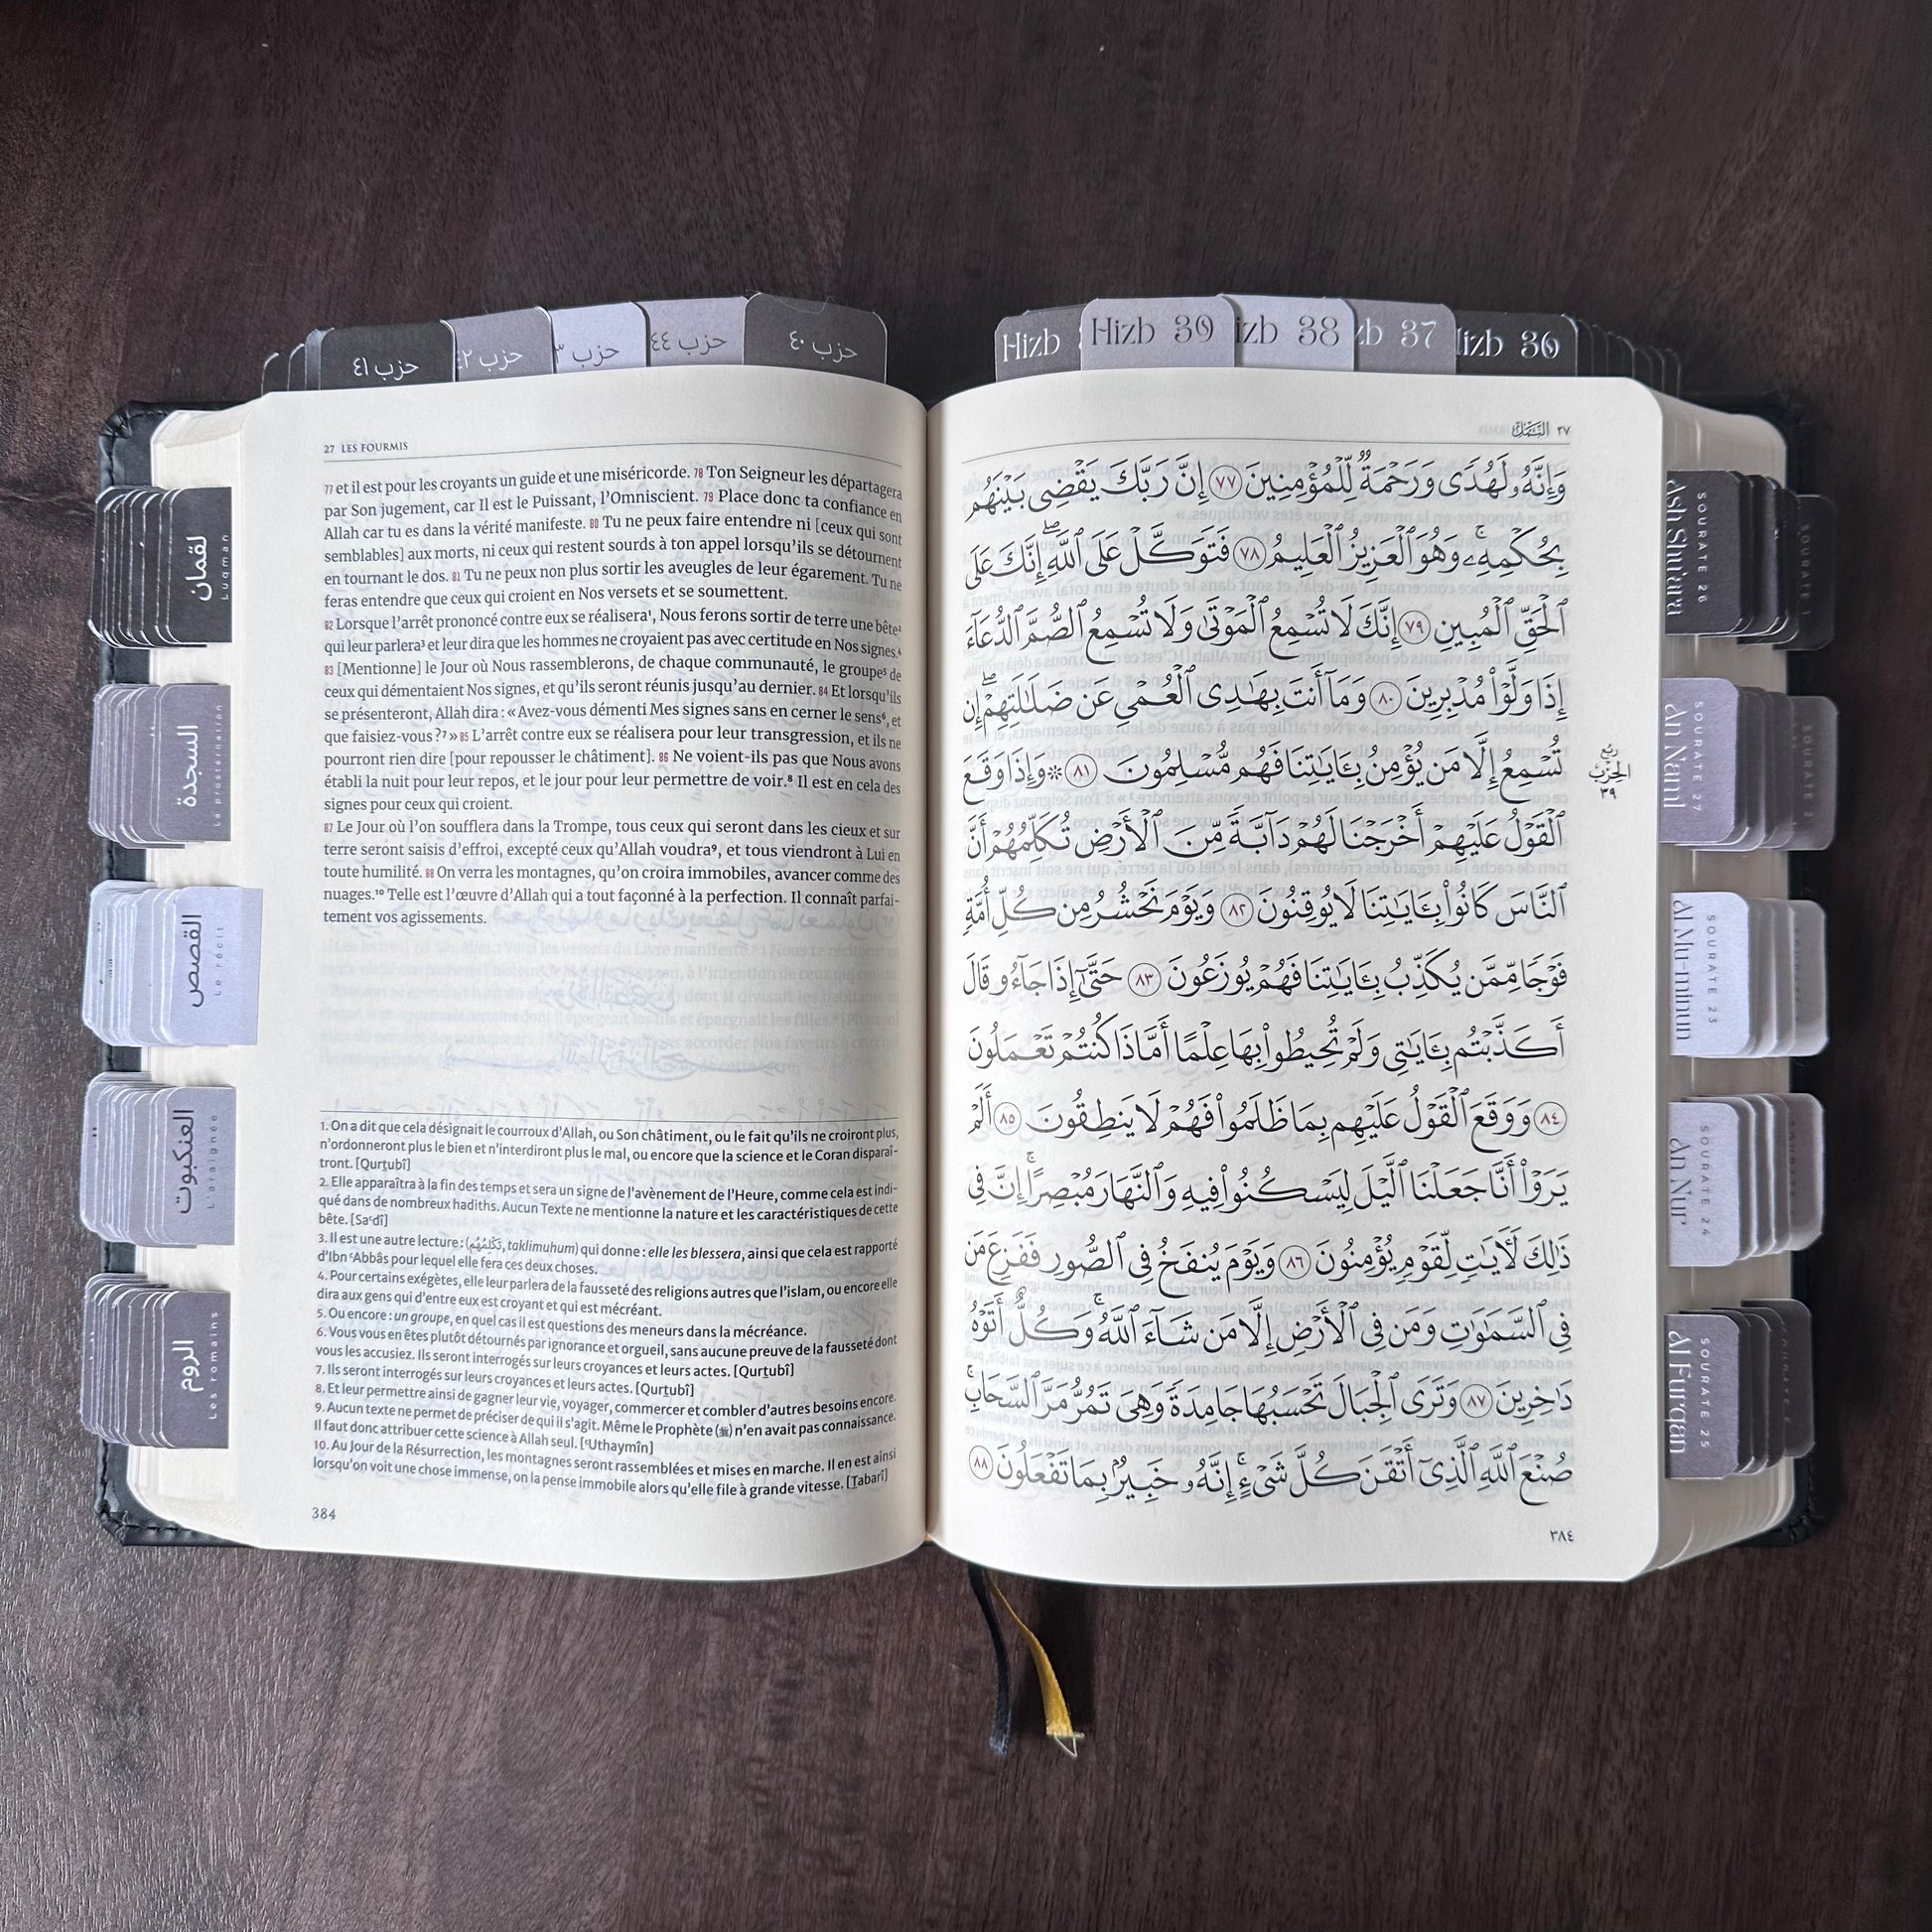 حزب ٤١
حزب ٤٢
حزب
حزب ٤٤
حزب ٤٠
Hizb
Hizb 39
38
37
36
27 LES FOURMIS
77 et il est pour les croyants un guide et une miséricorde. 78 Ton Seigneur les départagera
par Son jugement, car Il est le Puissant, l’Omniscient. 79 Place donc ta confiance en
Allah car tu es dans la vérité manifeste. 80 Tu ne peux faire entendre ni [ceux qui sont
semblables] aux morts, ni ceux qui restent sourds à ton appel lorsqu’ils se détournent
en tournant le dos. 81 Tu ne peux non plus sortir les aveugles de leur égarement. Tu ne
feras entendre que ceux qui croient en Nos versets et se soumettent.
82 Lorsque l’arrêt prononcé contre eux se réalisera¹, Nous ferons sortir de terre une bête²
qui leur parlera³ et leur dira que les hommes ne croyaient pas avec certitude en Nos signes.⁴
83 [Mentionne] le Jour où Nous rassemblerons, de chaque communauté, le groupe⁵ de
ceux qui démentaient Nos signes, et qu’ils seront réunis jusqu’au dernier. 84 Et lorsqu’ils
se présenteront, Allah dira : « Avez-vous démenti Mes signes sans en cerner le sens⁶, et
que faisiez-vous ?⁷ » 85 L’arrêt contre eux se réalisera pour leur transgression, et ils ne
pourront rien dire [pour repousser le châtiment]. 86 Ne voient-ils pas que Nous avons
établi la nuit pour leur repos, et le jour pour leur permettre de voir.⁸ Il est en cela des
signes pour ceux qui croient.
87 Le Jour où l’on soufflera dans la Trompe, tous ceux qui seront dans les cieux et sur
terre seront saisis d’effroi, excepté ceux qu’Allah voudra⁹, et tous viendront à Lui en
toute humilité. 88 On verra les montagnes, qu’on croira immobiles, avancer comme des
nuages.¹⁰ Telle est l’œuvre d’Allah qui a tout façonné à la perfection. Il connaît parfai-
tement vos agissements.
1. On a dit que cela désignait le courroux d’Allah, ou Son châtiment, ou le fait qu’ils ne croiront plus,
n’ordonneront plus le bien et n’interdiront plus le mal, ou encore que la science et le Coran disparaî-
tront. [Qurṭubî]
2. Elle apparaîtra à la fin des temps et sera un signe de l’avènement de l’Heure, comme cela est indi-
qué dans de nombreux hadiths. Aucun Texte ne mentionne la nature et les caractéristiques de cette
bête. [Saʿdî]
3. Il est une autre lecture : (تَكْلِمُهُمْ, taklimuhum) qui donne : elle les blessera, ainsi que cela est rapporté
d’Ibn ʿAbbâs pour lequel elle fera ces deux choses.
4. Pour certains exégètes, elle leur parlera de la fausseté des religions autres que l’islam, ou encore elle
dira aux gens qui d’entre eux est croyant et qui est mécréant.
5. Ou encore : un groupe, en quel cas il est questions des meneurs dans la mécréance.
6. Vous vous en êtes plutôt détournés par ignorance et orgueil, sans aucune preuve de la fausseté dont
vous les accusiez. Ils seront interrogés sur leurs croyances et leurs actes. [Qurṭubî]
7. Ils seront interrogés sur leurs croyances et leurs actes. [Qurṭubî]
8. Et leur permettre ainsi de gagner leur vie, voyager, commercer et combler d’autres besoins encore.
9. Aucun texte ne permet de préciser de qui il s’agit. Même le Prophète (ﷺ) n’en avait pas connaissance.
Il faut donc attribuer cette science à Allah seul. [ʿUthaymîn]
10. Au Jour de la Résurrection, les montagnes seront rassemblées et mises en marche. Il en est ainsi
lorsqu’on voit une chose immense, on la pense immobile alors qu’elle file à grande vitesse. [Ṭabarî]
384
٢٧ النَّمْل
وَإِنَّهُۥ لَهُدًى وَرَحْمَةٌ لِّلْمُؤْمِنِينَ ٧٧ إِنَّ رَبَّكَ يَقْضِى بَيْنَهُم
بِحُكْمِهِۦۚ وَهُوَ ٱلْعَزِيزُ ٱلْعَلِيمُ ٧٨ فَتَوَكَّلْ عَلَى ٱللَّهِۖ إِنَّكَ عَلَى
ٱلْحَقِّ ٱلْمُبِينِ ٧٩ إِنَّكَ لَا تُسْمِعُ ٱلْمَوْتَىٰ وَلَا تُسْمِعُ ٱلصُّمَّ ٱلدُّعَآءَ
إِذَا وَلَّوْا۟ مُدْبِرِينَ ٨٠ وَمَآ أَنتَ بِهَـٰدِى ٱلْعُمْىِ عَن ضَلَـٰلَتِهِمْۖ إِن
تُسْمِعُ إِلَّا مَن يُؤْمِنُ بِـَٔايَـٰتِنَا فَهُم مُّسْلِمُونَ ٨١ ۞ وَإِذَا وَقَعَ
ٱلْقَوْلُ عَلَيْهِمْ أَخْرَجْنَا لَهُمْ دَآبَّةً مِّنَ ٱلْأَرْضِ تُكَلِّمُهُمْ أَنَّ
ٱلنَّاسَ كَانُوا۟ بِـَٔايَـٰتِنَا لَا يُوقِنُونَ ٨٢ وَيَوْمَ نَحْشُرُ مِن كُلِّ أُمَّةٍ
فَوْجًا مِّمَّن يُكَذِّبُ بِـَٔايَـٰتِنَا فَهُمْ يُوزَعُونَ ٨٣ حَتَّىٰٓ إِذَا جَآءُو قَالَ
أَكَذَّبْتُم بِـَٔايَـٰتِى وَلَمْ تُحِيطُوا۟ بِهَا عِلْمًا أَمَّاذَا كُنتُمْ تَعْمَلُونَ
٨٤ وَوَقَعَ ٱلْقَوْلُ عَلَيْهِم بِمَا ظَلَمُوا۟ فَهُمْ لَا يَنطِقُونَ ٨٥ أَلَمْ
يَرَوْا۟ أَنَّا جَعَلْنَا ٱلَّيْلَ لِيَسْكُنُوا۟ فِيهِ وَٱلنَّهَارَ مُبْصِرًاۚ إِنَّ فِى
ذَٰلِكَ لَـَٔايَـٰتٍ لِّقَوْمٍ يُؤْمِنُونَ ٨٦ وَيَوْمَ يُنفَخُ فِى ٱلصُّورِ فَفَزِعَ مَن
فِى ٱلسَّمَـٰوَٰتِ وَمَن فِى ٱلْأَرْضِ إِلَّا مَن شَآءَ ٱللَّهُۚ وَكُلٌّ أَتَوْهُ
دَٰخِرِينَ ٨٧ وَتَرَى ٱلْجِبَالَ تَحْسَبُهَا جَامِدَةً وَهِىَ تَمُرُّ مَرَّ ٱلسَّحَابِۚ
صُنْعَ ٱللَّهِ ٱلَّذِىٓ أَتْقَنَ كُلَّ شَىْءٍۚ إِنَّهُۥ خَبِيرٌۢ بِمَا تَفْعَلُونَ ٨٨
٣٨٤
ربع
الحزب
٣٩
لقمان
Luqman
السجدة
La prosternation
القصص
Le récit
العنكبوت
L'araignée
الروم
Les romains
SOURATE 26
Ash Shu'ara
SOURATE 1
SOURATE 27
An Naml
SOURATE 2
SOURATE 23
Al Mu-minun
SOURATE 24
An Nur
SOURATE 25
Al Furqan